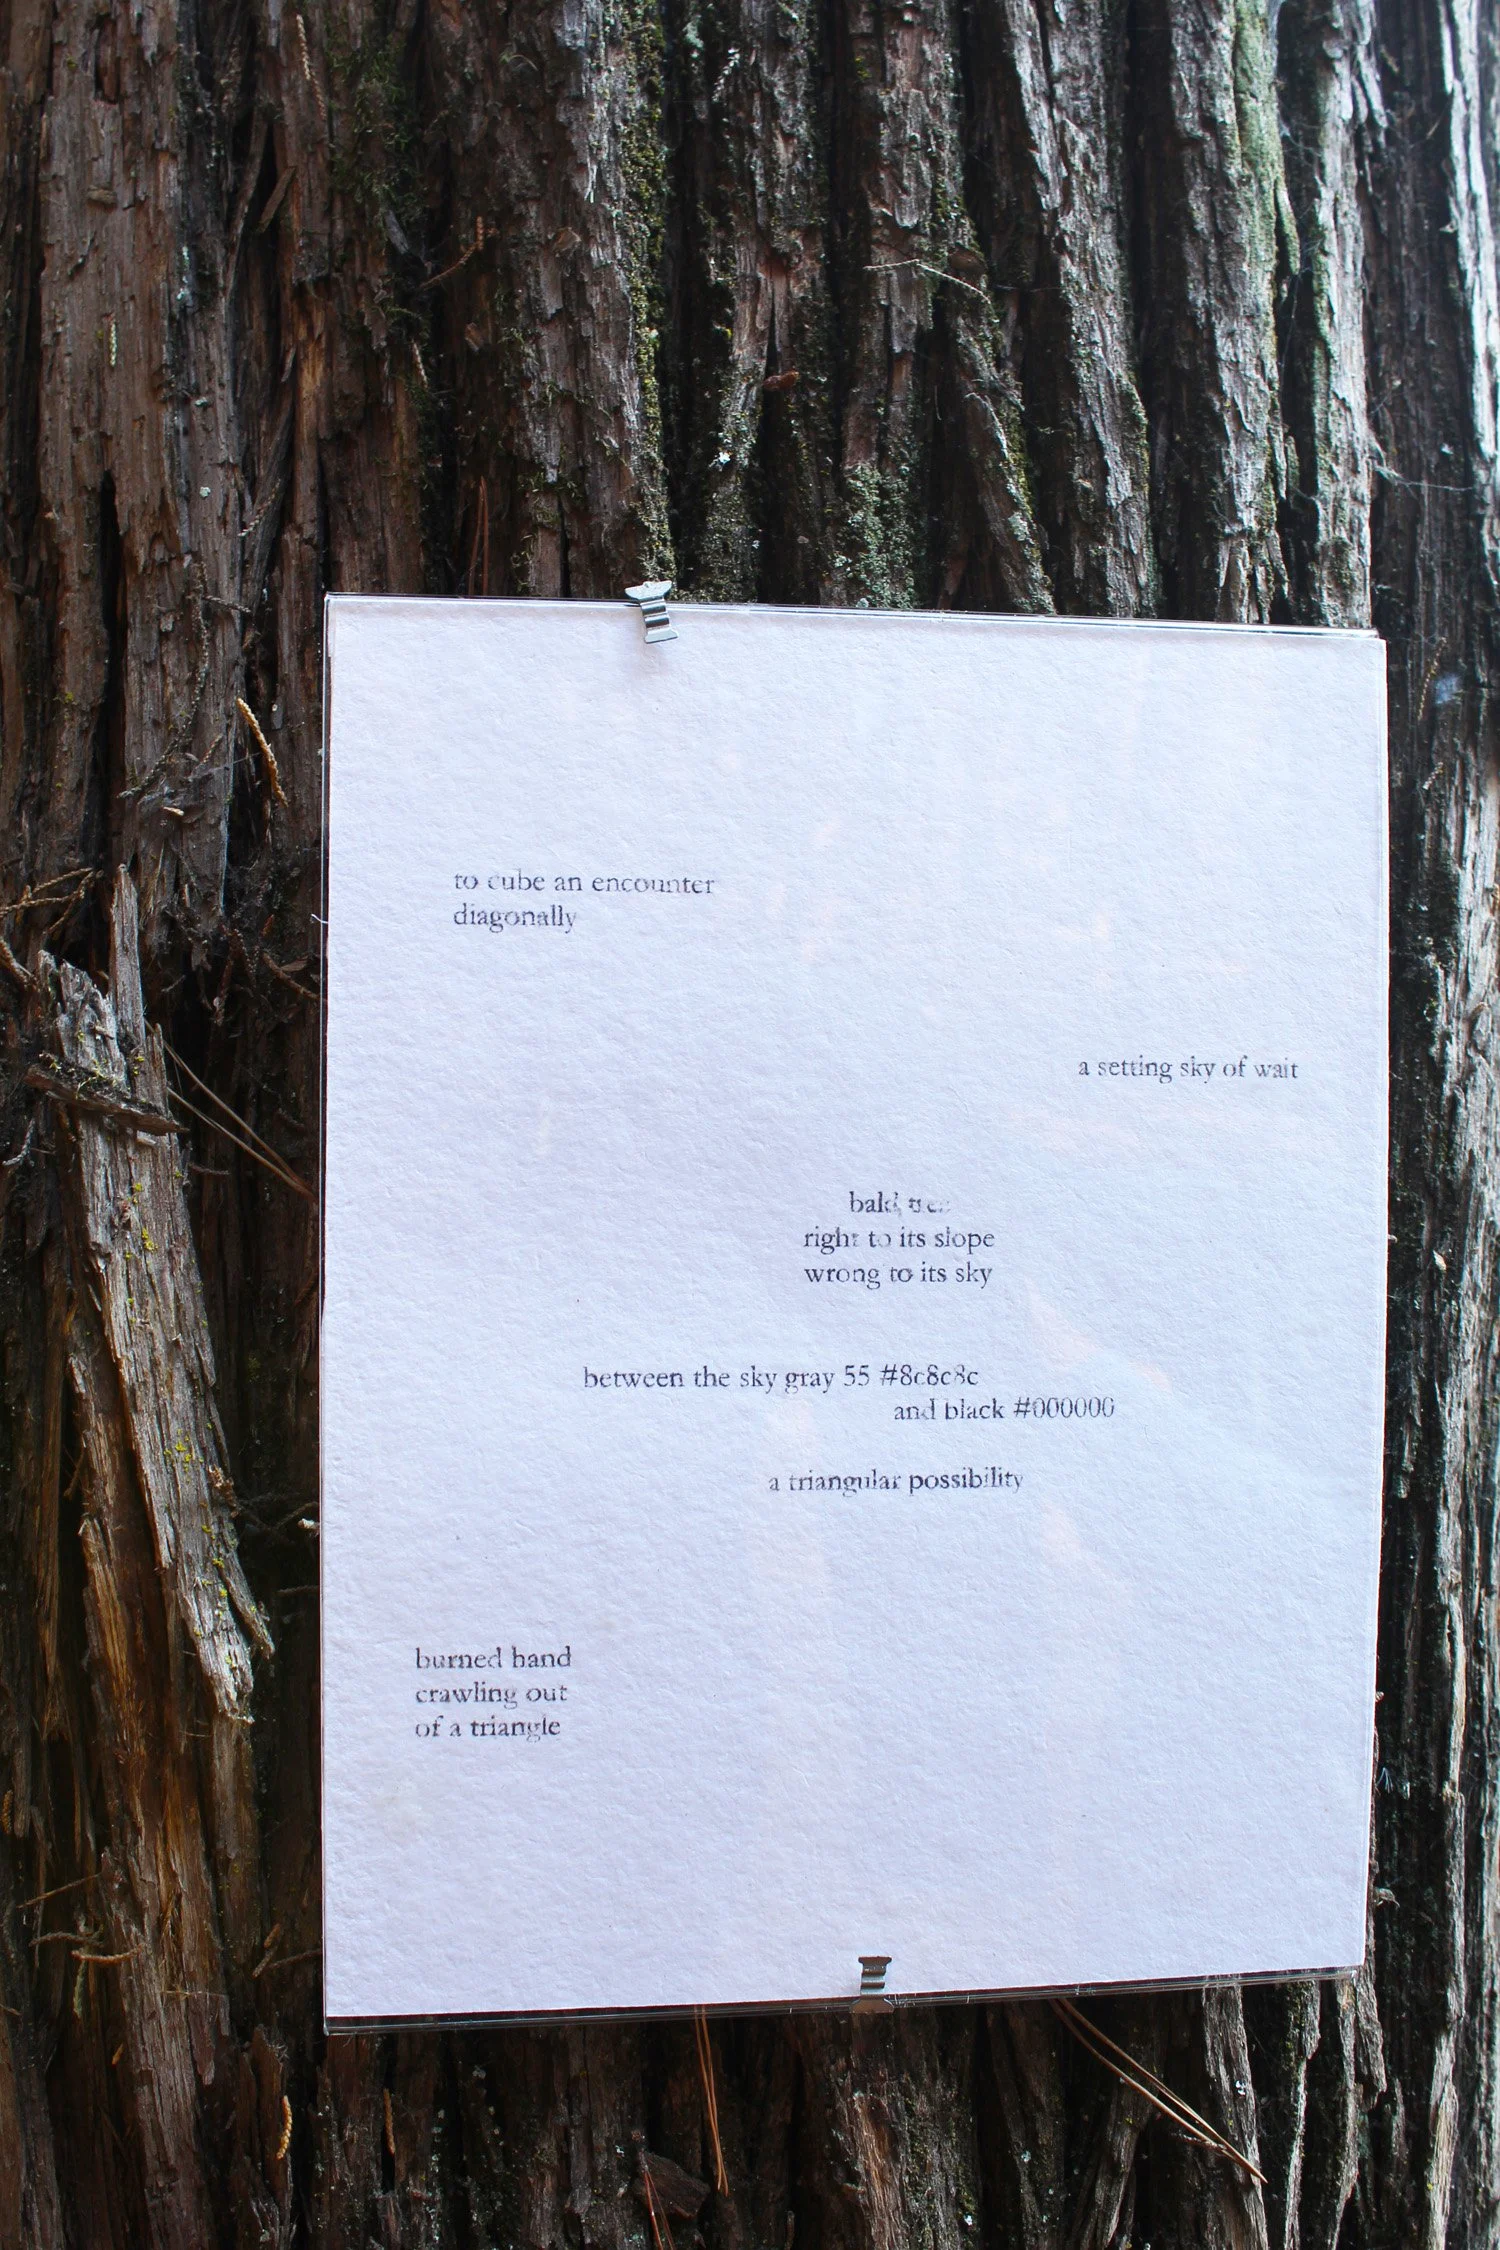 to cube an encounter
diagonally
a setting sky of wait
bald, tree
right to its slope
wrong to its sky
between the sky gray 55 #8c8c8c
and black #000000
a triangular possibility
burned hand
crawling out
of a triangle